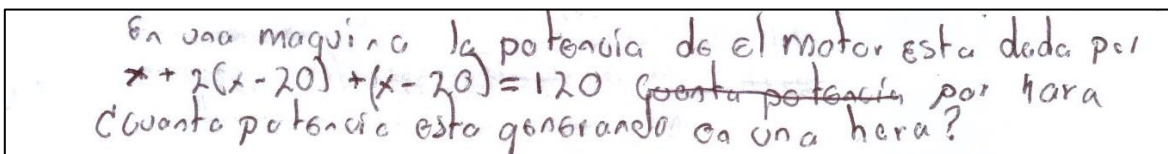 En una maquina la potencia de el motor esta dada por
x + 2(x - 20) + (x - 20) = 120 Cuanta potencia por hora
¿Cuanta potencia esta generando en una hora?